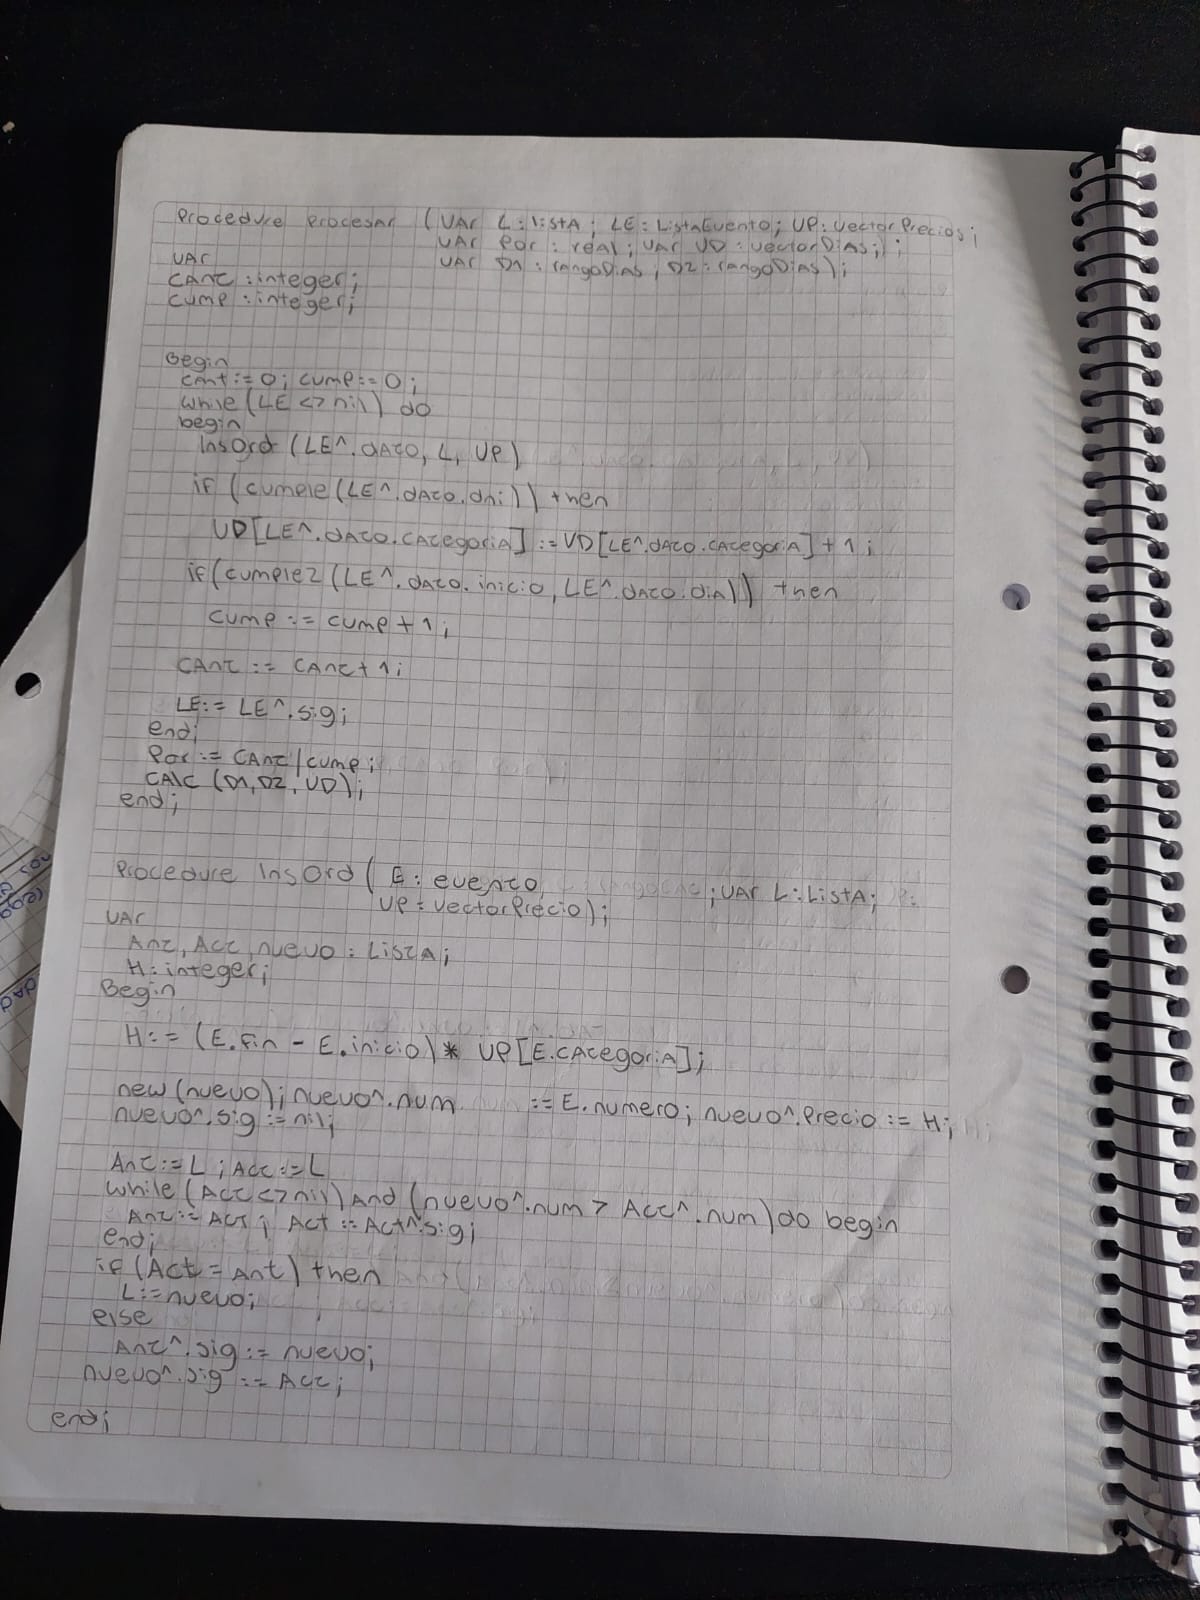 Procedure Procesar (VAR L: listA; LE: ListaEvento; VP: vectorPrecios;
VAR Por: real; VAR VD: vectorDias;);
VAR D1: rangoDias; D2: rangoDias);
VAR
CANT: integer;
cump: integer;
Begin
cAnt:=0; cump:=0;
while (LE <> nil) do
begin
InsOrd (LE^.dATO, L, VP)
if (cumple (LE^.dATO.dni)) then
VD[LE^.dATO.CATegoriA]:=VD[LE^.dATO.CATegoriA]+1;
if(cumple2 (LE^.dATO.inicio, LE^.dATO.DiA)) then
cump := cump+1;
CAnT := CAnT+1;
LE:= LE^.sig;
end;
Por := CAnT/cump;
CAlC (D1,D2,VD);
end;
Procedure InsOrd (E: evento ;VAR L:ListA;
VP: vectorPrecio);
VAR
AnT, AcT, nuevo: LisTA;
H: integer;
Begin
H:= (E.fin - E.inicio)* VP[E.CATegoriA];
new (nuevo); nuevo^.num := E.numero; nuevo^.Precio := H;
nuevo^.sig := nil;
AnT:=L; AcT:=L
while (AcT<>nil) And (nuevo^.num > AcT^.num) do begin
AnT:= AcT; Act := Act^.sig;
end;
if (Act = Ant) then
L:=nuevo;
else
AnT^.sig := nuevo;
nuevo^.sig := AcT;
end;